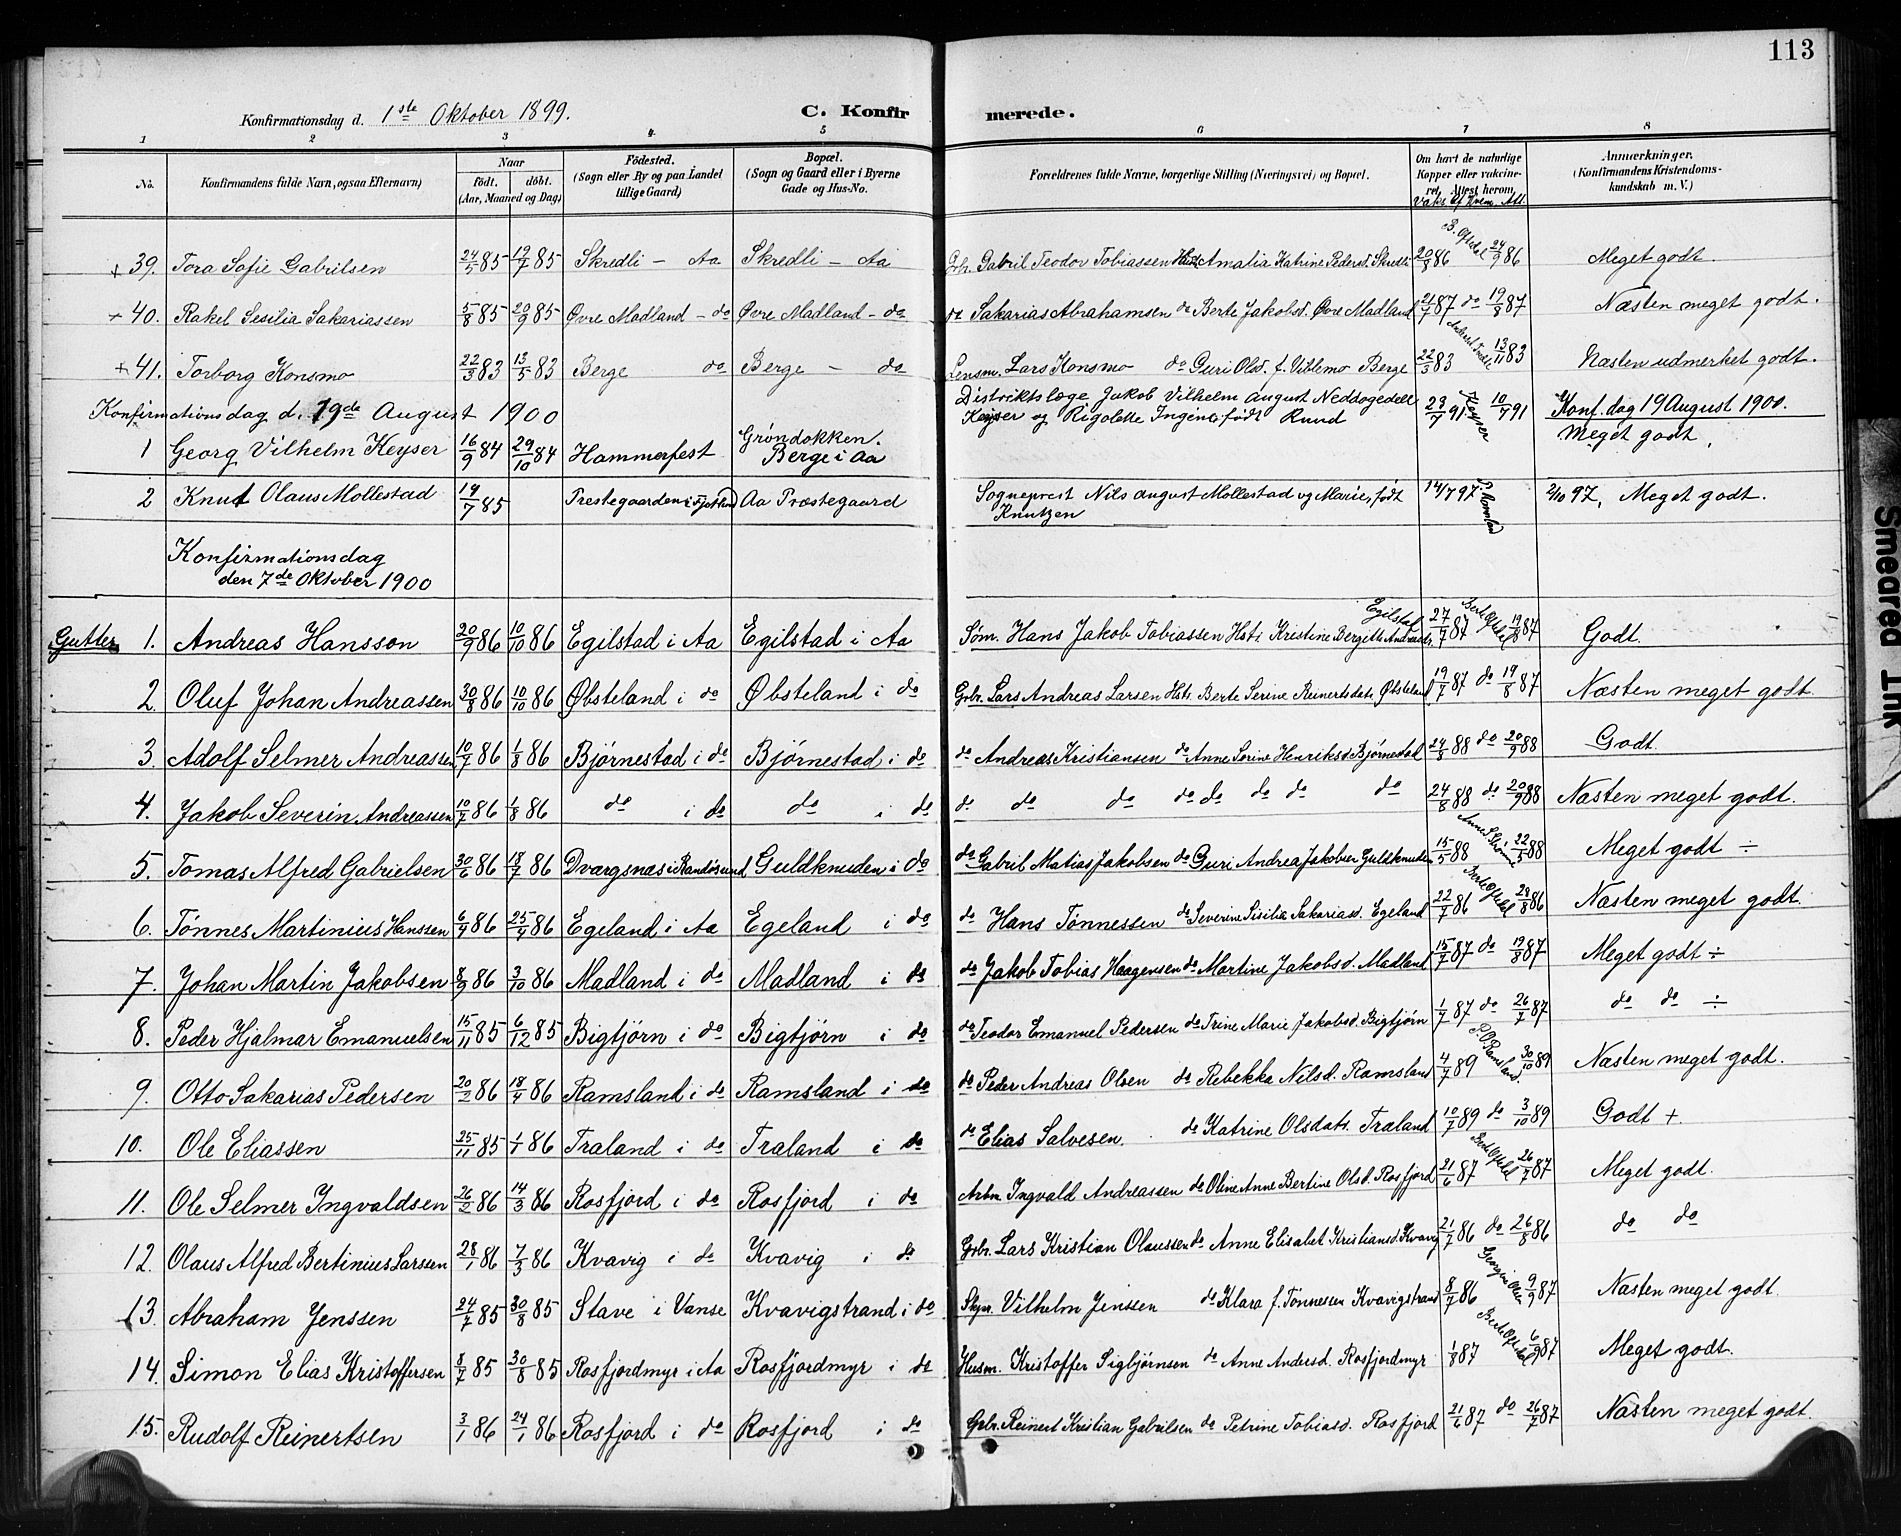 113
Konfirmationsdag d. 1ste Oktober 1899.
C. Konfirmerede.
1 2 3 4 5 6 7 8
No. | Konfirmandens fulde Navn, ogsaa Efternavn) | Naar født. døbt. (Aar, Maaned og Dag) | Fødested. (Sogn eller By og paa Landet tillige Gaard) | Bopæl. (Sogn og Gaard eller i Byerne Gade og Hus-No. | Forældrenes fulde Navne, borgerlige Stilling (Næringsvei) og Bopæl. | Om havt de naturlige Kopper eller vaccineret. Attest herom. | Anmærkninger. (Konfirmandens Kristendomskundskab m. V.)
+ 39. Tora Sofie Gabrilsen 24/5 85 19/7 85 Skredli - Aa Skredli - Aa Grb. Gabril Teodor Tobiassen Amalia Katrine Pedersd. Skredli 20/8 86 B. Oftedal 24/9 86 Meget godt.
+ 40. Rakel Sesilia Sakariassen 5/8 85 20/9 85 Øvre Madland - do Øvre Madland - do do Sakarias Abrahamsen do Berte Jakobsd. Øvre Madland 21/7 87 do 19/8 87 Næsten meget godt.
+ 41. Torborg Konsmo 22/3 83 13/5 83 Berge do Berge - do Lensm. Lars Konsmo do Guri Olsd. f. Vitlemo Berge 22/3 83 13/11 83 Næsten udmerket godt.
Konfirmationsdag d. 19de August 1900
1 Georg Vilhelm Keyser 16/9 84 29/10 84 Hammerfest Grøndokken. Berge i Aa Distriktslæge Jakob Vilhelm August Neddogedell Keyser og Rigolette Ingine, født Rund 23/7 91 Keyser 10/7 91 Konf. dag 19 August 1900. Meget godt.
2 Knut Olaus Mollestad 19/7 85 Prestegaarden i Fjotland Aa Præstegaard Sogneprest Nils August Mollestad og Marie, født Knutzen 14/7 97 2/10 97, Meget godt.
Konfirmationsdag
den 7de Oktober 1900
Gutter 1. Andreas Hansson 20/9 86 10/10 86 Egilstad i Aa Egilstad i Aa Søm. Hans Jakob Tobiassen Hstr. Kristine Bergitte Andreasdr. Egilstad 27/7 87 Berte Oftedal 19/8 87 Godt.
2. Oluf Johan Andreassen 30/8 86 10/10 86 Øbsteland i do Øbsteland i do Grbr. Lars Andreas Larsen Hstr. Berte Serine Reinertsdatr. Øbsteland 19/7 87 do 19/8 87 Næsten meget godt.
3. Adolf Selmer Andreassen 10/7 86 1/8 86 Bjørnestad i do Bjørnestad i do do Andreas Kristiansen do Anne Serine Henriksd. Bjørnestad 24/8 88 do 20/9 88 Godt.
4. Jakob Severin Andreassen 10/7 86 1/8 86 do i do do i do do do do do do do do do 24/8 88 do 20/9 88 Næsten meget godt.
5. Tomas Alfred Gabrielsen 30/6 86 18/7 86 Dvergsnæs i Randøsund Guldknuden i do do Gabril Matias Jakobsen do Guri Andrea Jakobsen Guldknuden 15/5 88 22/5 88 Meget godt ÷
6. Tønnes Martinius Hanssen 6/4 86 25/4 86 Egeland i Aa Egeland i do do Hans Tønnessen do Severine Sisilia Sakariasd. Egeland 22/7 86 Berte Oftedal 28/8 86 Næsten meget godt.
7. Johan Martin Jakobsen 8/9 86 3/10 86 Madland i do Madland i do do Jakob Tobias Haagensen do Martine Jakobsd. Madland 15/7 87 do 19/8 87 Meget godt ÷
8. Peder Hjalmar Emanuelsen 15/11 85 6/12 85 Bigtjørn i do Bigtjørn i do do Teodor Emanuel Pedersen do Trine Marie Jakobsd. Bigtjørn 1/7 87 do 26/7 87 do do ÷
9. Otto Sakarias Pedersen 20/2 86 18/4 86 Ramsland i do Ramsland i do do Peder Andreas Olsen do Rebekka Nilsd. Ramsland 4/7 89 P. O. Ramsland. 30/10 89 Næsten meget godt.
10. Ole Eliassen 25/11 85 1/1 86 Traland i do Traland i do do Elias Salvesen. do Katrine Olsdatr. Træland 10/7 89 do 3/10 89 Godt +
11. Ole Selmer Ingvaldsen 26/2 86 14/3 86 Rosfjord i do Rosfjord i do Arbm. Ingvald Andreassen do Oline Anne Bertine Olsd. Rosfjord 21/6 87 Berte Oftedal 26/7 87 Meget godt.
12. Olaus Alfred Bertinius Larssen 28/1 86 7/3 86 Kvavig i do Kvavig i do Grbr. Lars Kristian Olaussen do Anne Elisabet Kristiansd. Kvavig 21/7 86 do 26/8 86 do do
13. Abraham Jenssen 24/7 85 30/8 85 Stave i Vanse Kvavigstrand i do Skpr. Vilhelm Jenssen do Klara f. Tønnessen Kvavigstrand 8/7 86 9/9 87 Næsten meget godt.
14. Simon Elias Kristoffersen 8/7 85 30/8 85 Rosfjordmyr i Aa Rosfjordmyr i do Husm. Kristoffer Sigbjørnsen do Anne Andersd. Rosfjordmyr 1/8 87 Berte Oftedal 6/9 87 Meget godt.
15. Rudolf Reinertsen 3/1 86 24/1 86 Rosfjord i do Rosfjord i do Grbr. Reinert Kristian Gabrilsen do Petrine Tobiasd. Rosfjord 21/6 87 do 26/7 87 Næsten meget godt.
Smeared Ink